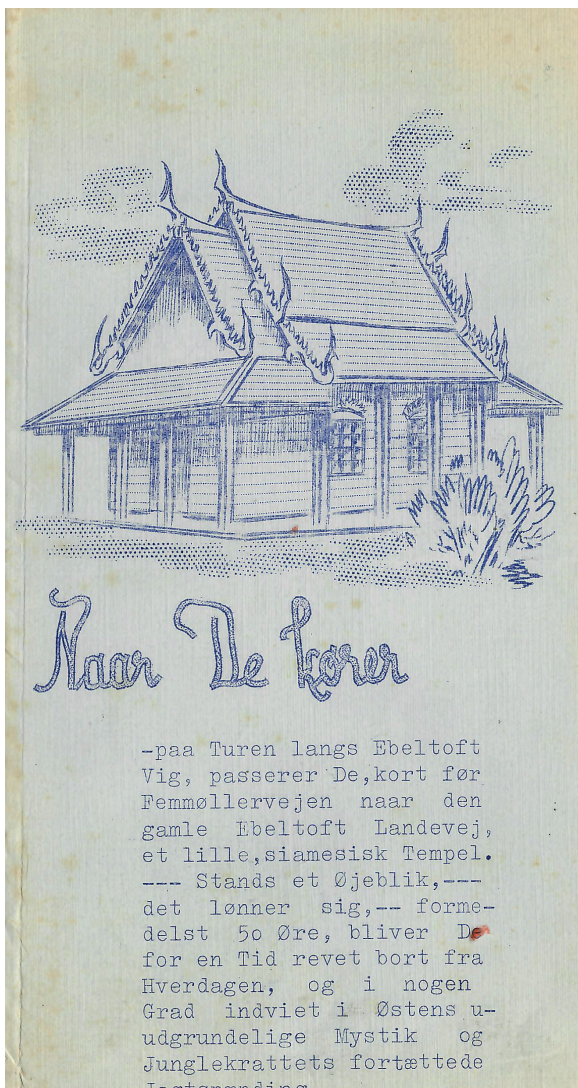 Naar De kører
-paa Turen langs Ebeltoft
Vig, passerer De,kort før
Femmøllervejen naar den
gamle Ebeltoft Landevej,
et lille,siamesisk Tempel.
--- Stands et Øjeblik,---
det lønner sig,-- forme-
delst 5o Øre, bliver De
for en Tid revet bort fra
Hverdagen, og i nogen
Grad indviet i Østens u-
udgrundelige Mystik og
Junglekrattets fortættede